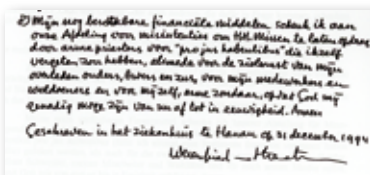 2) Mijn nog beschikbare financiële middelen schenk ik aan
onze Afdeling voor misintenties om H.H. Missen te laten opdragen
door arme priesters voor "pro jus habentibus" die ikzelf
vergeten zou hebben, alsmede voor de zielerust van mijn
overleden ouders, broers en zus, voor mijn medewerkers en
weldoeners en voor mijzelf, arme zondaar, opdat God mij
genadig moge zijn van nu af tot in eeuwigheid. Amen
Geschreven in het ziekenhuis te Hanau op 31 december 1994
Werenfried